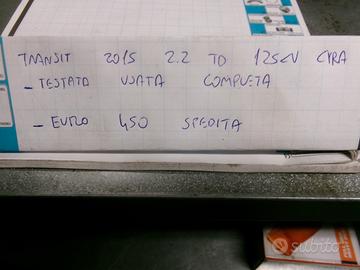 TRANSIT 2015 2.2 TD 125CV CYRA
- TESTATA USATA COMPLETA
- EURO 450 SPEDITA
subito